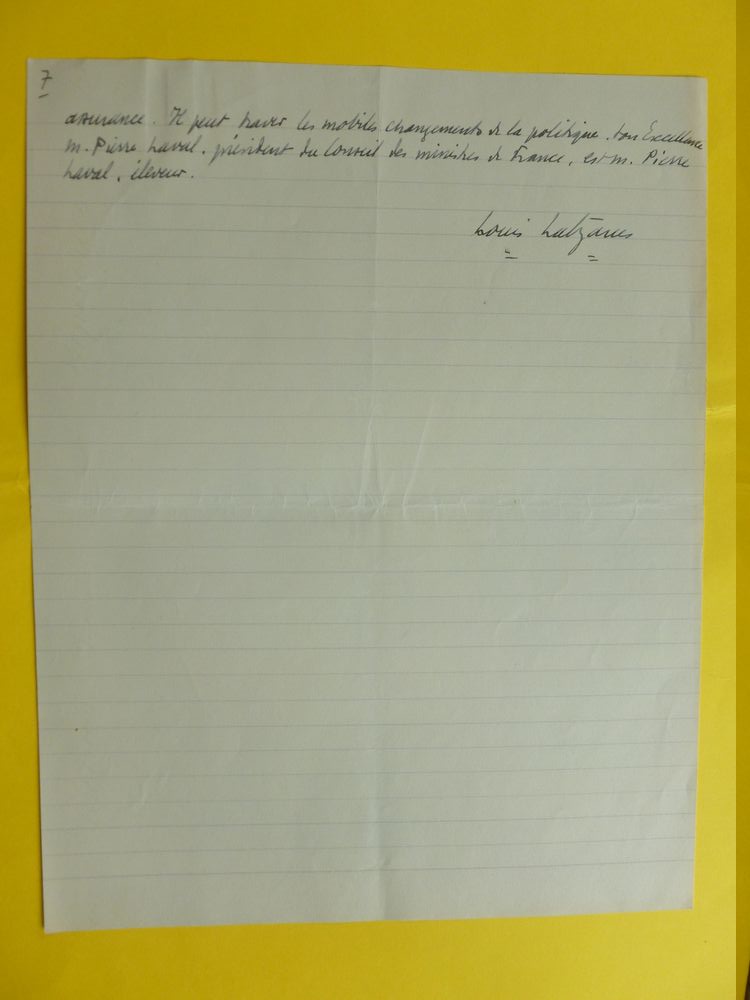 7
assurance. Il peut braver les mobiles changements de la politique. Son Excellence
M. Pierre Laval, président du Conseil des ministres de France, est M. Pierre
Laval, éleveur.
Louis Latzarus